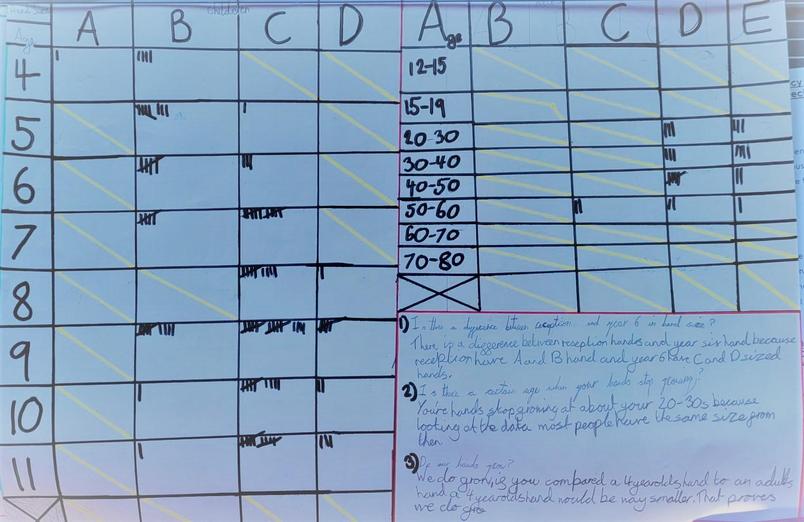 Hand Size
children
Age
A B C D
4
5
6
7
8
9
10
11
Age B C D E
12-15
15-19
20-30
30-40
40-50
50-60
60-70
70-80
1) Is there a difference between reception and year 6 in hand size?
There is a difference between reception hands and year six hand because
reception have A and B hand and year 6 have C and D sized
hands.
2) Is there a certain age when your hands stop growing?
You're hands stop groning at about your 20-30s because
looking at the data most people have the same size from
then
3) Do our hands grow?
We do gron, is you compared a 4 year olds hand to an adults
hand a 4 year olds hand would be nay smaller. That proves
we do